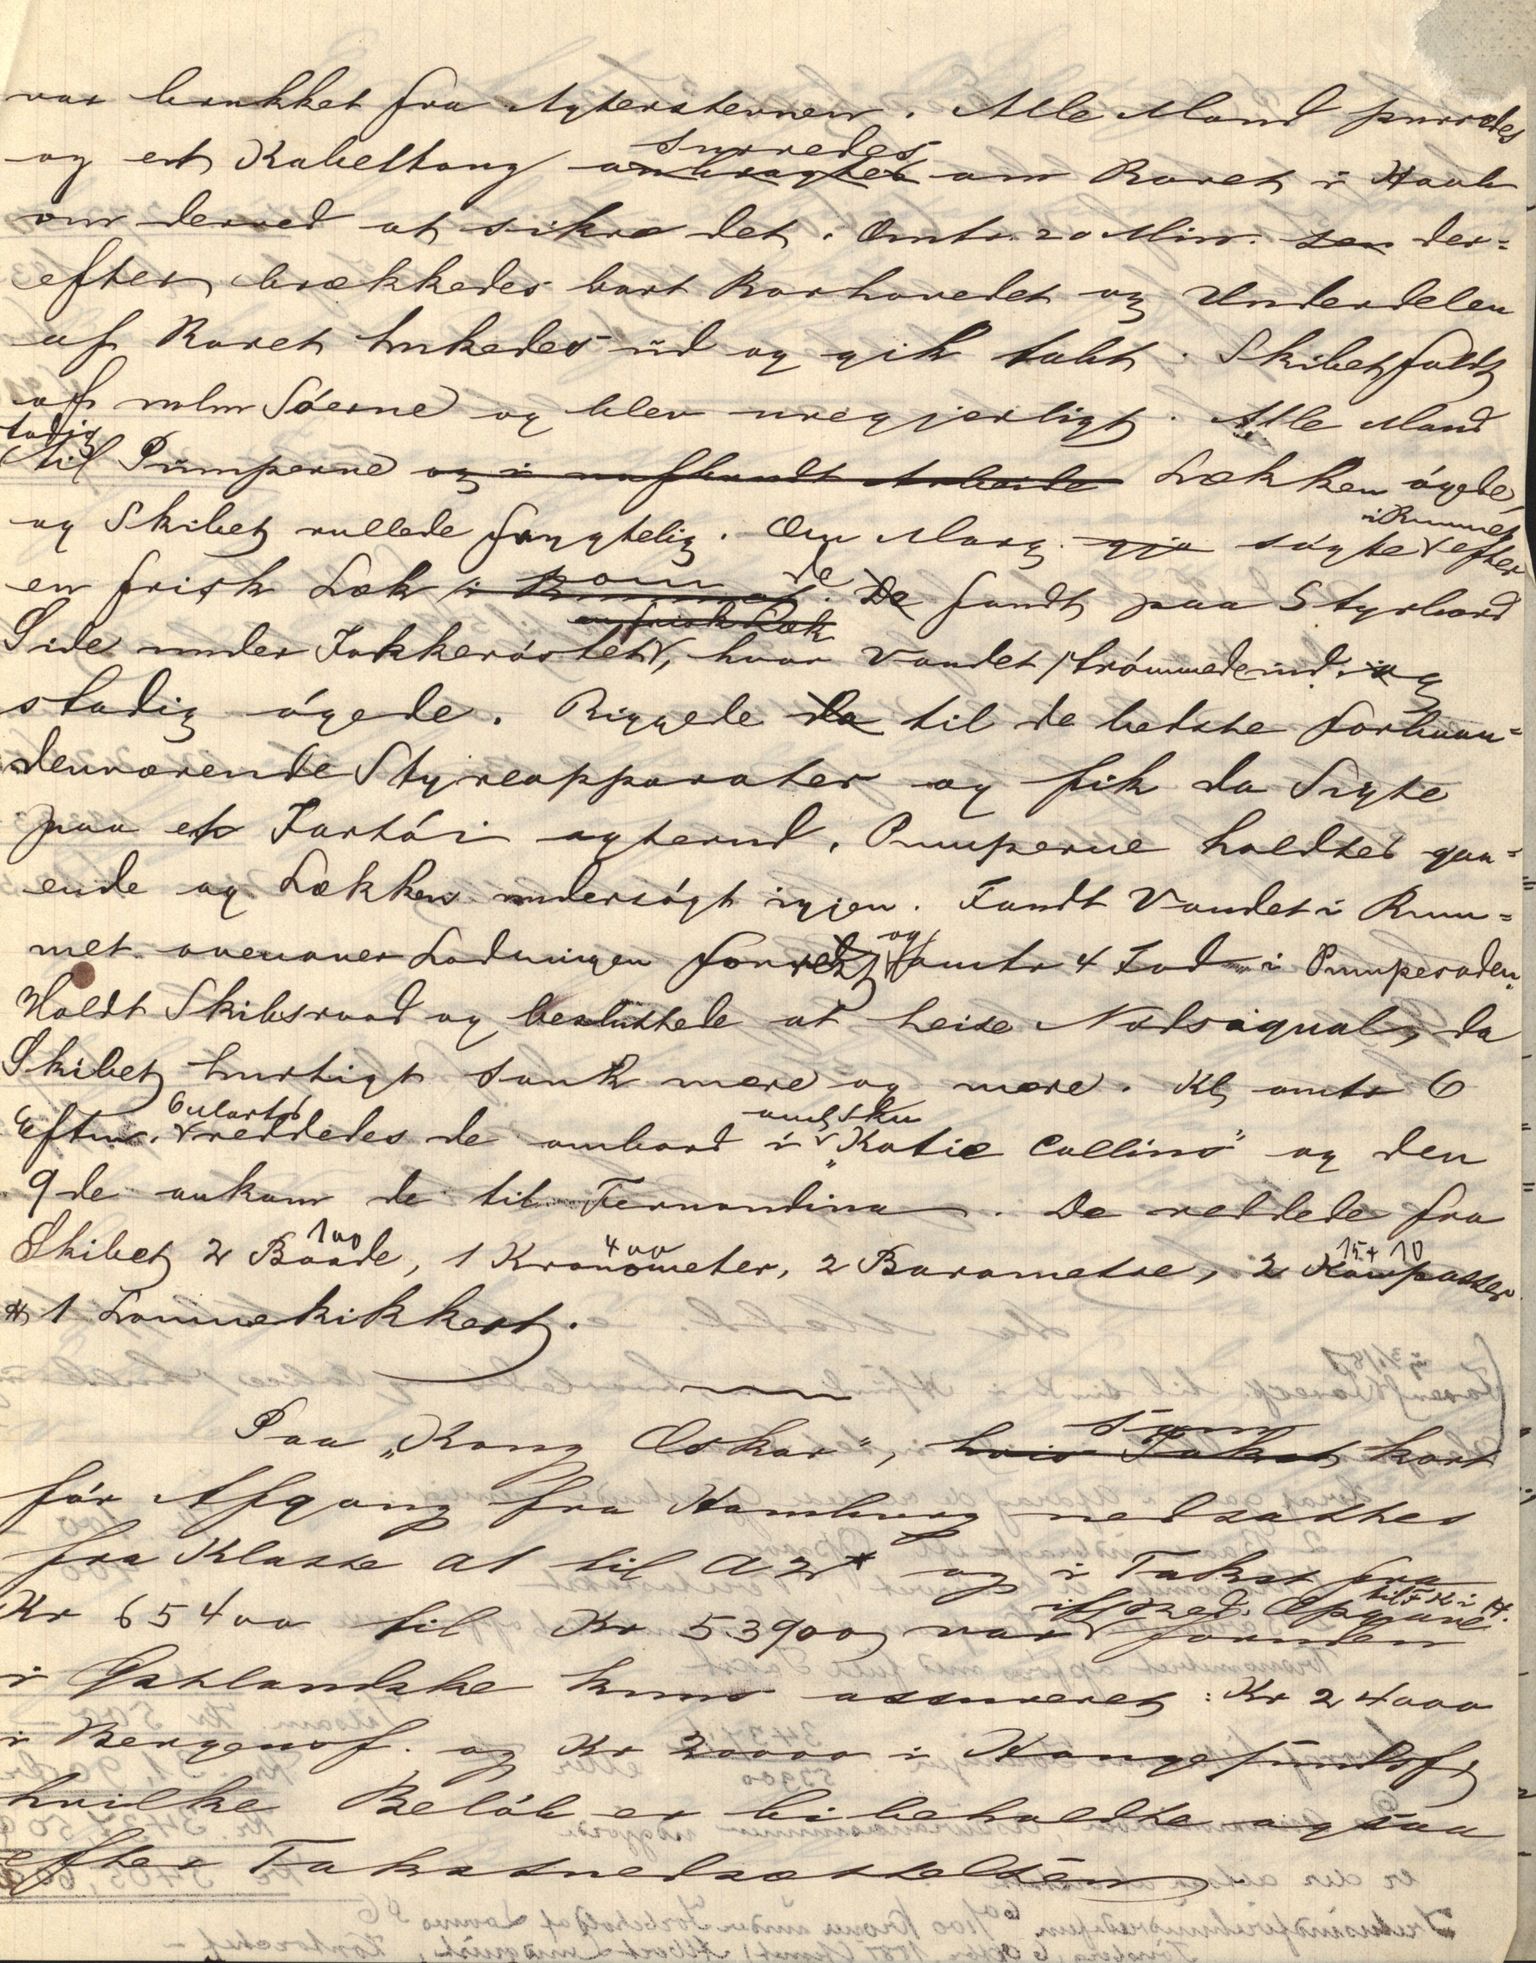 var brukket fra Agterstevnen. Alle Mand purredes
og et Kabeltoug ~~anbragtes~~ surredes om Roret i Haab
om derved at sikre det. Omtr. 20 Min. ~~sen~~ der=
efter brækkedes bort Rorhovedet og Underdelen
af Roret hukedes ud og gik tabt. Skibet faldt
af mlm Söerne og blev uregjerligt. Alle Mand
stadig til Pumperne ~~og i uafbrudt Arbeide~~ Lækken ögede,
og Skibet rullede frygtelig. Om Morg. ~~gjo~~ sögte i Rummet efter
en frisk Læk ~~i Rummet~~ som de ~~De~~ fandt paa Styrbord
Side under Fokkeröstet ~~en frisk Læk~~, hvor Vandet strömmede ind og
stadig ögede. Riggede ~~da~~ til de bedste forhaan=
denværende Styreapparater og fik da Sigte
paa et Fartöi agterud. Pumperne holdtes gaa=
ende og Lækken undersögt igjen. Fandt Vandet i Rum=
met ovenover Ladningen og omtr 4 Fod i Pumpesoden.
Holdt Skibsraad og besluttede at heise Nödsignal, da
Skibet hurtigt sank mere og mere. Kl omtr 6
Eftm. reddedes de ombord i amk Skn "Katie Collins" og den
9de ankom de til Fernandina. De reddede fra
Skibet 2 Baade, 100 1 Kronometer, 400 2 Barometre, 2 Kompasser 15 + 10
1 Lommekikkert.
Paa "Kong Oskar", ~~hvis Takst~~ som kort
för Afgang fra Hamburg nedsattes
fra Klasse A1 til A2* og i Takst fra
Kr 65400 til Kr 53900 var foruden
i Östlandske kun assureret: Kr 24000
i Bergensf. og Kr 20000 i Haugesundsf,
hvilke Belöb er bibeholdte ogsaa
efter Takstnedsættelsen